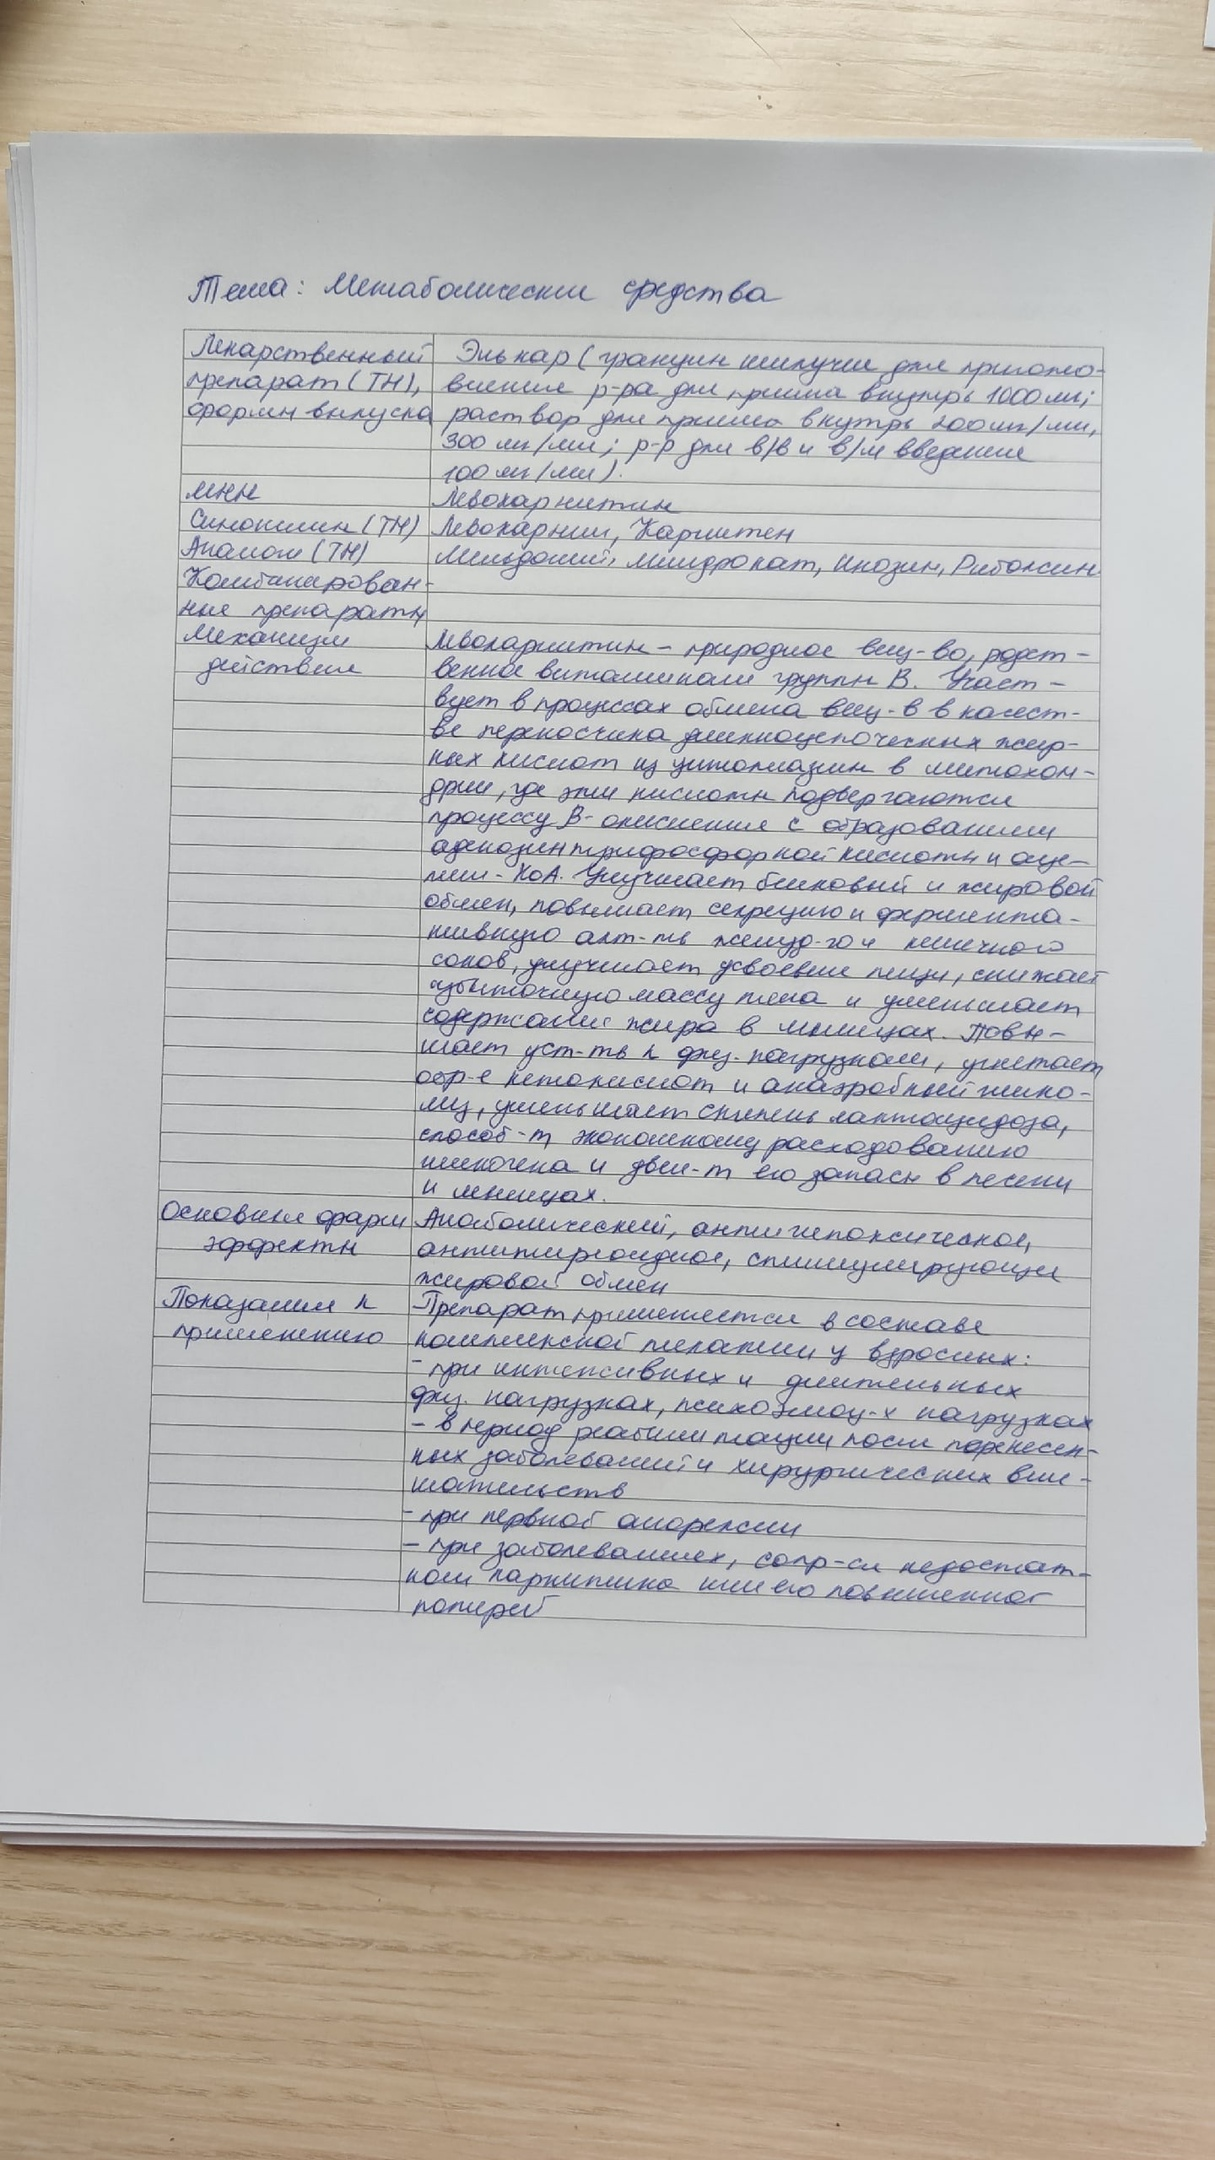 Тема: Метаболические средства
Лекарственный препарат (ТН), формы выпуска
Элькар (гранулы шипучие для приготов-
вление р-ра для приёма внутрь 1000 мг;
раствор для приема внутрь 200 мг/мл,
300 мг/мл; р-р для в/в и в/м введения
100 мг/мл).
МНН
Левокарнитин
Синонимы (ТН)
Левокарнил, Карнитен
Аналоги (ТН)
Мельдоний, Милдронат, Инозин, Рибоксин
Комбинирован-
ные препараты
Механизм
действия
Левокарнитин - природное вещ-во, родст-
венное витаминам группы В. Участ-
вует в процессах обмена вещ-в в качест-
ве переносчика длинноцепочечных жир-
ных кислот из цитоплазмы в митохон-
дрии, где эти кислоты подвергаются
процессу β-окисления с образованием
аденозинтрифосфорной кислоты и аце-
тил-КоА. Улучшает белковый и жировой
обмен, повышает секрецию и фермента-
тивную акт-ть желуд-го и кишечного
соков, улучшает усвоение пищи, снижает
избыточную массу тела и уменьшает
содержание жира в мышцах. Повы-
шает уст-ть к физ. нагрузкам, угнетает
обр-е кетокислот и анаэробный глико-
лиз, уменьшает степень лактоацидоза,
способ-т экономному расходованию
гликогена и увел-т его запасы в печени
и мышцах.
Основные фарм
эффекты
Анаболический, антигипоксическое,
антитиреоидное, стимулирующее
жировой обмен
Показания к
применению
Препарат применяется в составе
комплексной терапии у взрослых:
- при интенсивных и длительных
физ. нагрузках, психоэмоц-х нагрузках
- в период реабилитации после перенесен-
ных заболеваний и хирургических вме-
шательств
- при нервной анорексии
- при заболеваниях, сопр-ся недостат-
ком карнитина или его повышенной
потерей